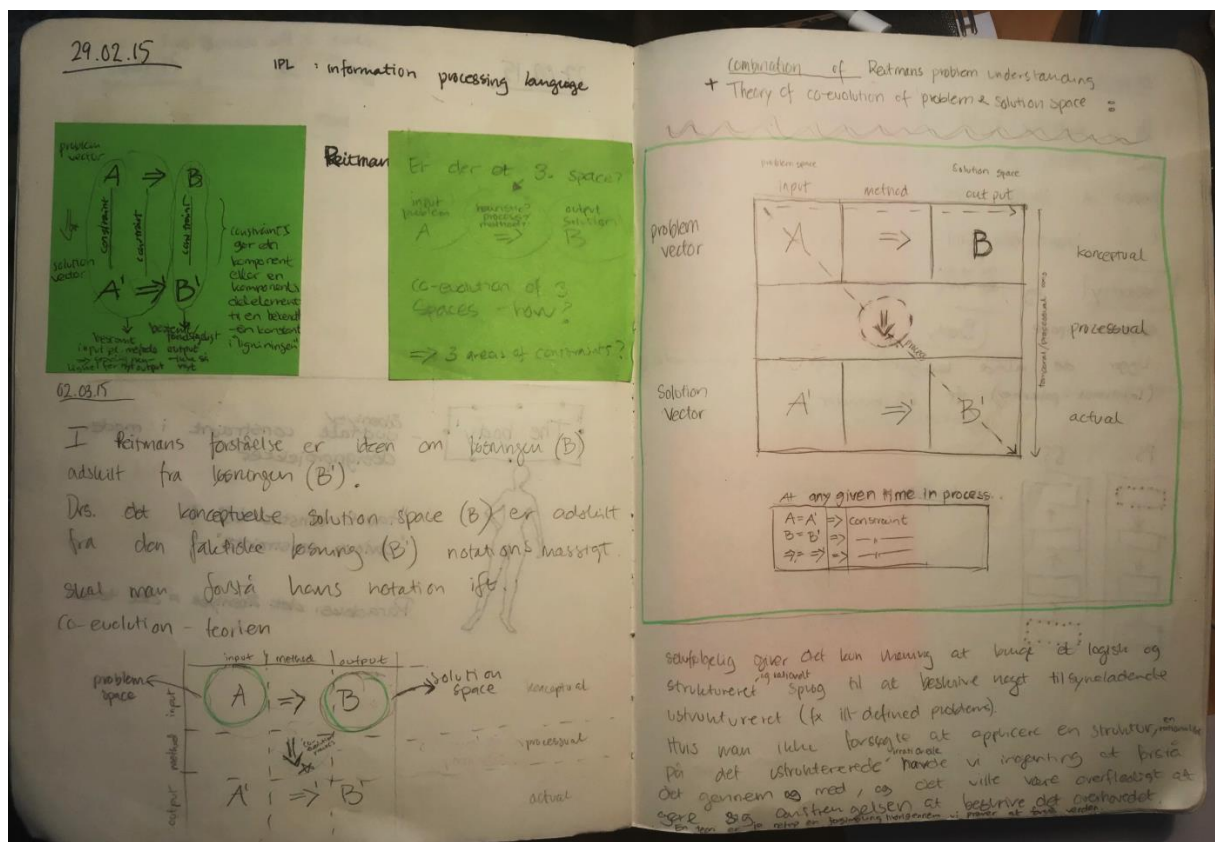 29.02.15
IPL : information processing language
problem vector
A => B
constraint
constraint
constraint
solution vector
A' => B'
constraints
gør en
komponent
eller en
komponents
delelement
til en bekendt
- en konstant
i "ligningen"
input
output
Reitman
Er der et 3. space?
input problem
output solution
A => B
co-evolution of 3
spaces - how?
=> 3 areas of constraints?
02.03.15
I Reitmans forståelse er ideen om løsningen (B)
adskilt fra løsningen (B').
Dvs. det konceptuelle solution space (B) er adskilt
fra den faktiske løsning (B') notationsmæssigt.
skal man forstå hans notation ift.
co-evolution - teorien
input method output
problem space
A => B
solution space
konceptual
input
method
processual
output
A' => B'
actual
combination of Reitmans problem understanding
+ Theory of co-evolution of problem & solution space :
problem space
solution space
input method output
problem vector
A => B
konceptual
processual
Solution Vector
A' => B'
actual
At any given time in process.
A = A' => constraint
B = B' => -"-
=> = => => -"-
selvfølgelig giver det kun mening at bruge et logisk og
struktureret og rationelt sprog til at beskrive noget tilsyneladende
ustruktureret (fx ill-defined problems).
Hvis man ikke forsøgte at applicere en struktur,
på det ustrukturerede havde vi ingenting at forstå
det gennem og med, og det ville være overflødigt at
gøre sig anstrengelsen at beskrive det overhovedet.